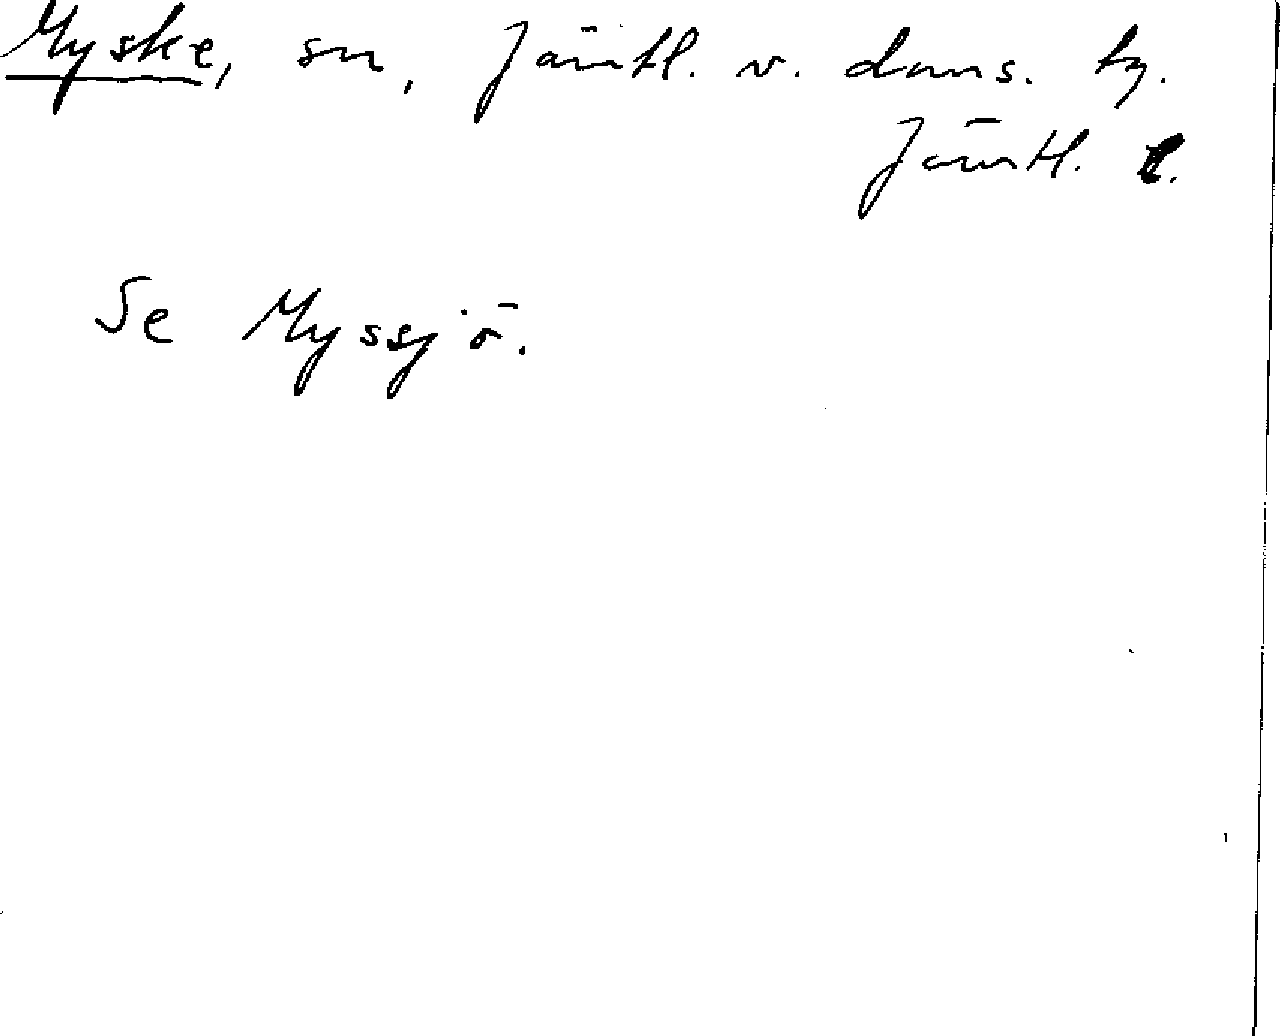 Myske, sn, Jämtl. v. doms. tg.
Jämtl. l.
Se Myssjö.